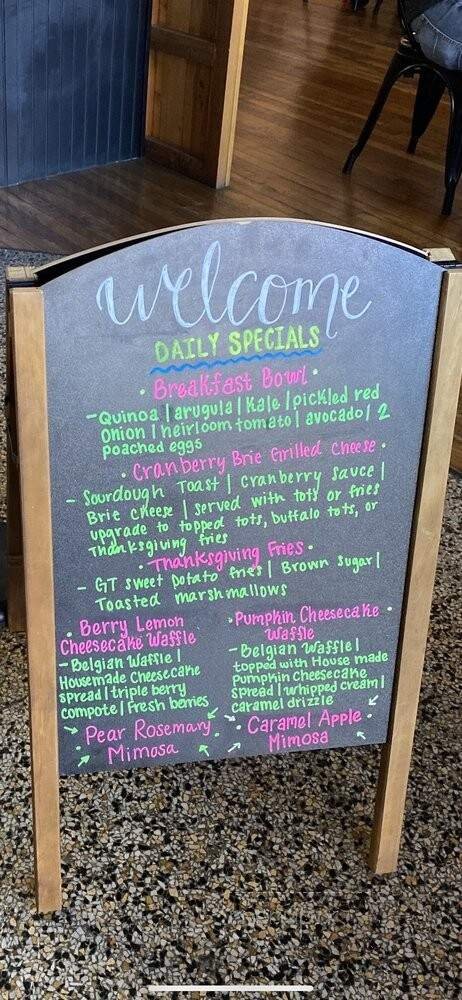 welcome
DAILY SPECIALS
• Breakfast Bowl •
- Quinoa | arugula | Kale | pickled red
onion | heirloom tomato | avocado | 2
poached eggs
• Cranberry Brie Grilled Cheese •
- Sourdough Toast | Cranberry Sauce |
Brie Cheese | served with tots or fries
upgrade to topped tots, buffalo tots, or
Thanksgiving fries
• Thanksgiving Fries •
- GT sweet potato fries | Brown Sugar |
Toasted marshmallows
• Berry Lemon
Cheesecake Waffle
- Belgian Waffle |
Housemade Cheesecake
spread | triple berry
compote | Fresh berries
• Pumpkin Cheesecake •
Waffle
- Belgian Waffle |
topped with House made
Pumpkin Cheesecake
spread | whipped cream |
caramel drizzle
Pear Rosemary
Mimosa
Caramel Apple
Mimosa